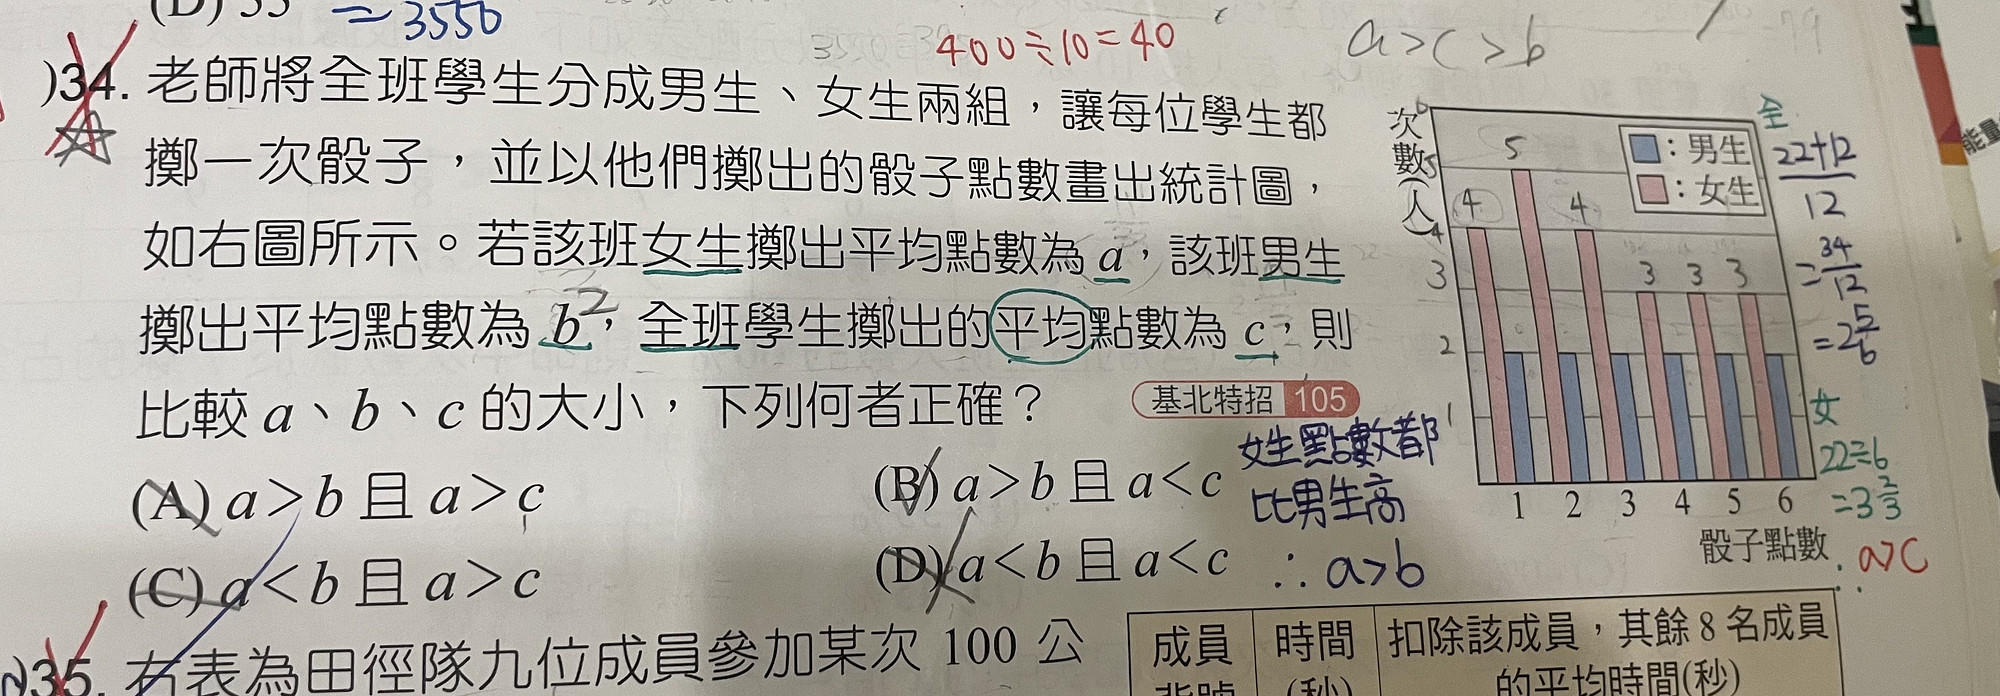 (D) 35 = 3550
400÷10=40
a>c>b
)34. 老師將全班學生分成男生、女生兩組，讓每位學生都
擲一次骰子，並以他們擲出的骰子點數畫出統計圖，
如右圖所示。若該班女生擲出平均點數為 a，該班男生
擲出平均點數為 b，全班學生擲出的平均點數為 c，則
比較 a、b、c 的大小，下列何者正確？
基北特招 105
(A) a>b 且 a>c
(B) a>b 且 a<c
(C) a<b 且 a>c
(D) a<b 且 a<c
女生點數都
比男生高
∴a>b
次數(人)
6
5
4
3
2
1
：男生
：女生
4 5 4 3 3 3
1 2 3 4 5 6
骰子點數
全
22+12
12
=34/12
=2 5/6
女
22÷6
=3 2/3
∴a>c
35. 右表為田徑隊九位成員參加某次 100 公
成員
時間
(秒)
扣除該成員，其餘 8 名成員
的平均時間(秒)
能量